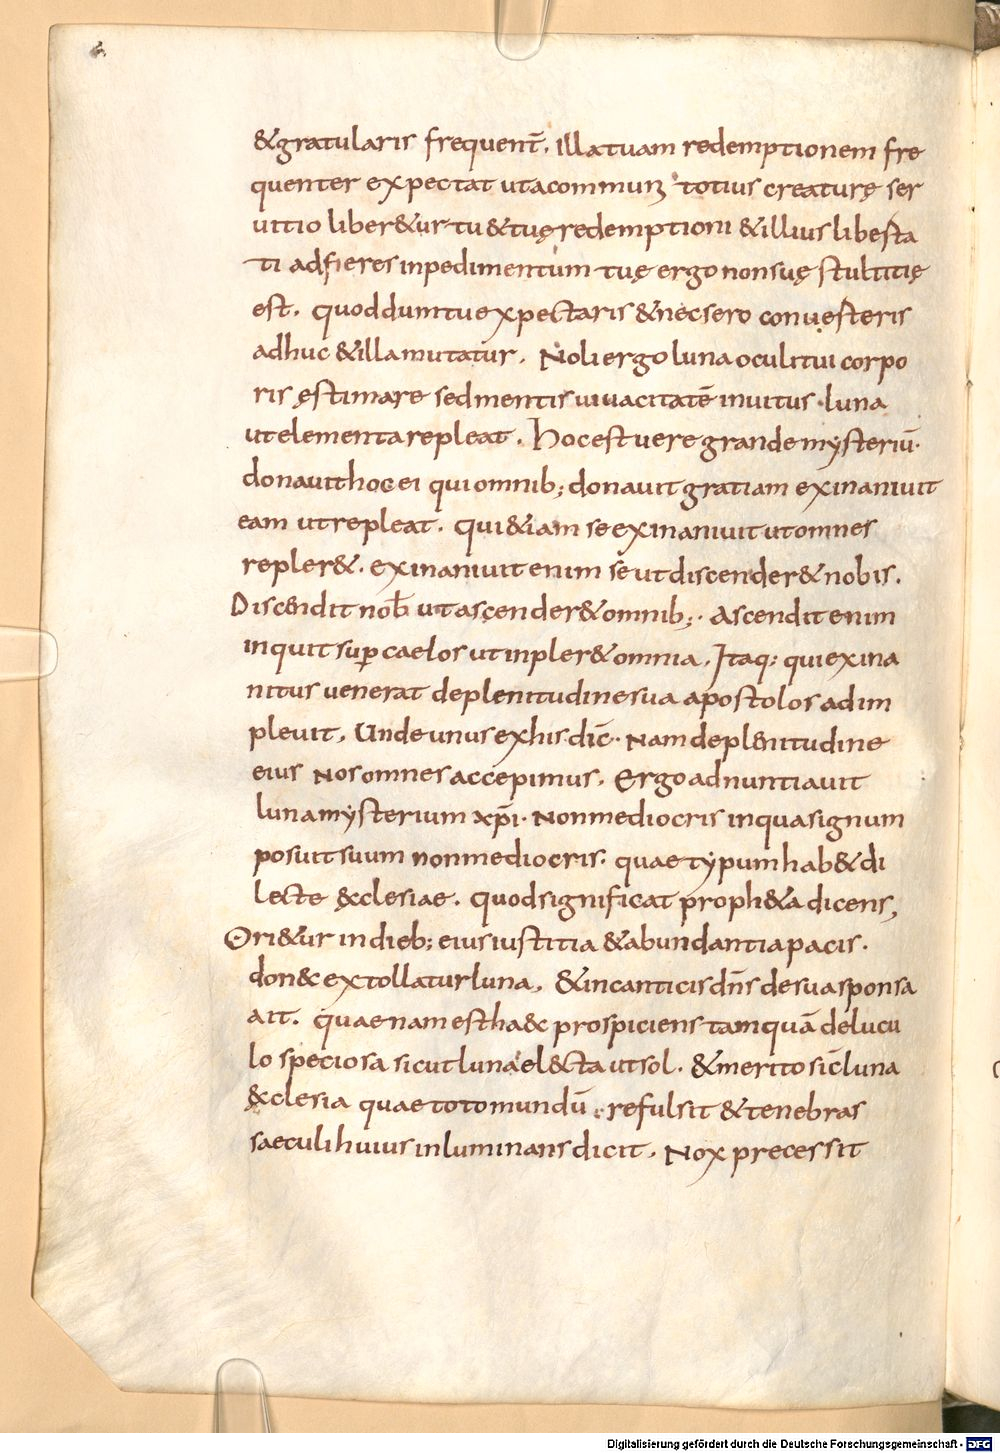 &gratularis frequent̄. Illa tuam redemptionem fre
quenter expectat ut a communi totius creaturę ser
uitio liber&ur tu & tuę redemptioni & illius liberta
ti adfieres inpedimentum tuę ergo non suę stultitię
est. quod dum tu expectaris & nec sero conuerteris
adhuc & illa mutatur. Noli ergo luna oculi tui corpo
ris ęstimare sed mentis uiuacitatē inuitus. luna
ut elementa repleat. Hoc est uere grande mysteriū.
donauit hoc ei qui omnib; donauit gratiam exinaniuit
eam ut repleat. qui &iam se exinaniuit ut omnes
repler&. exinaniuit enim se ut discender& nobis.
Discendit nob̄ ut ascender& omnib;. Ascendit enim
inquit sup̱ caelos ut inpler& omnia. Itaq; qui exina
nitus uenerat de plenitudine sua apostolos adim
pleuit. Unde unus ex his dic̄. Nam de plenitudine
eius nos omnes accepimus. Ergo adnuntiauit
luna mysterium xp̄i. Non mediocris in qua signum
posuit suum non mediocris. quae typum hab& di
lecte &clesiae. quod significat proph&a dicens,
Ori&ur in dieb; eius iustitia & abundantia pacis.
don&c extollatur luna. & in canticis dn̄s de sua sponsa
ait. quae nam est ha&c prospiciens tamquā delucu
lo speciosa sicut luna el&cta ut sol. & merito sic̄ luna
&clesia quae toto mundū refulsit & tenebras
saeculi huius inluminans dicit. Nox precessit
Digitalisierung gefördert durch die Deutsche Forschungsgemeinschaft - DFG